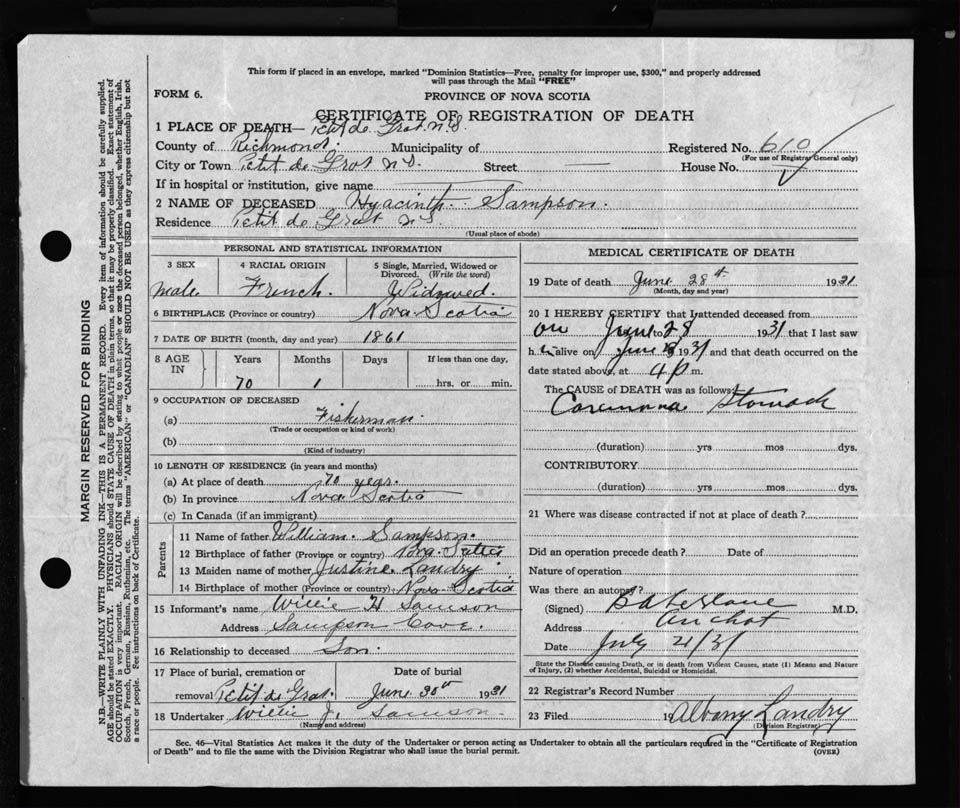 This form if placed in an envelope, marked "Dominion Statistics—Free, penalty for improper use, $300," and properly addressed
will pass through the Mail "FREE"
FORM 6.
PROVINCE OF NOVA SCOTIA
CERTIFICATE OF REGISTRATION OF DEATH
1 PLACE OF DEATH— Petit de Grat. N.S.
County of Richmond. Municipality of Registered No. 610
(For use of Registrar General only)
City or Town Petit de Grat N.S. Street — House No.
If in hospital or institution, give name —
2 NAME OF DECEASED Hyacinth Sampson.
Residence Petit de Grat N.S.
(Usual place of abode)
PERSONAL AND STATISTICAL INFORMATION
3 SEX 4 RACIAL ORIGIN 5 Single, Married, Widowed or
Divorced. (Write the word)
male French. Widowed.
6 BIRTHPLACE (Province or country) Nova Scotia
7 DATE OF BIRTH (month, day and year) 1861
8 AGE IN Years Months Days If less than one day,
70 1 hrs. or min.
9 OCCUPATION OF DECEASED
(a) Fisherman.
(Trade or occupation or kind of work)
(b)
(Kind of industry)
10 LENGTH OF RESIDENCE (in years and months)
(a) At place of death 70 years.
(b) In province Nova Scotia
(c) In Canada (if an immigrant)
Parents
11 Name of father William. Sampson.
12 Birthplace of father (Province or country) Nova Scotia
13 Maiden name of mother Justine Landry.
14 Birthplace of mother (Province or country) Nova Scotia
15 Informant's name Willie H Samson
Address Sampson Cove.
16 Relationship to deceased Son.
17 Place of burial, cremation or Date of burial
removal Petit de Grat. June 30th 1931
18 Undertaker Willie J. Samson.
(Name and address)
MEDICAL CERTIFICATE OF DEATH
19 Date of death June 28th 1931
(Month, day and year)
20 I HEREBY CERTIFY that I attended deceased from
on June 28 1931 that I last saw
h alive on June 1931 and that death occurred on the
date stated above, at 4 p.m.
The CAUSE of DEATH was as follows:
Stomach
(duration) yrs mos dys.
CONTRIBUTORY
(duration) yrs mos dys.
21 Where was disease contracted if not at place of death?
Did an operation precede death? Date of
Nature of operation
Was there an autopsy?
(Signed) M.D.
Address
Date July 2/31
State the Disease causing Death, or in death from Violent Causes, state (1) Means and Nature
of Injury, (2) whether Accidental, Suicidal or Homicidal.
22 Registrar's Record Number
23 Filed 19 Albany Landry
(Division Registrar)
Sec. 46—Vital Statistics Act makes it the duty of the Undertaker or person acting as Undertaker to obtain all the particulars required in the "Certificate of Registration
of Death" and to file the same with the Division Registrar who shall issue the burial permit.
(OVER)
MARGIN RESERVED FOR BINDING
N.B.—WRITE PLAINLY WITH UNFADING INK—THIS IS A PERMANENT RECORD. Every item of information should be carefully supplied.
AGE should be stated EXACTLY. PHYSICIANS should STATE CAUSE OF DEATH in plain terms, so that it may be properly classified. Exact statement of
OCCUPATION is very important. RACIAL ORIGIN will be described by stating to what people or race the deceased person belonged, whether English, Irish,
Scotch, French, German, Russian, Ruthenian, etc. The terms "AMERICAN" or "CANADIAN" SHOULD NOT BE USED as they express citizenship but not
a race or people. See instructions on back of Certificate.